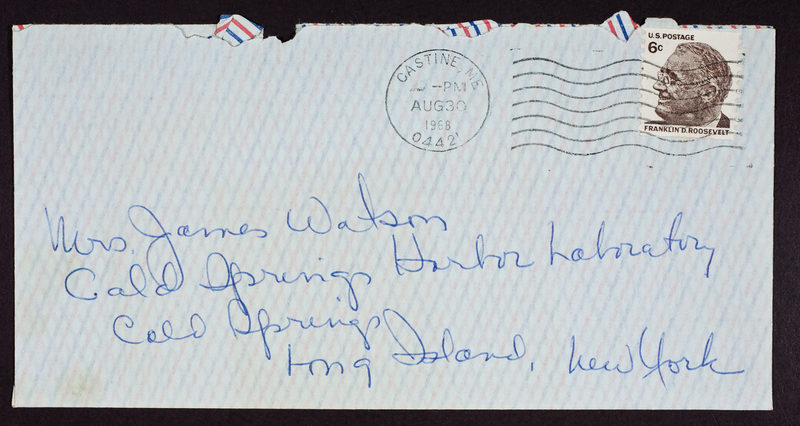 U.S. POSTAGE
6c
FRANKLIN D. ROOSEVELT
CASTINE, ME
-PM
AUG 30
1968
0442
Mrs. James Watson
Cold Springs Harbor Laboratory
Cold Springs
Long Island, New York